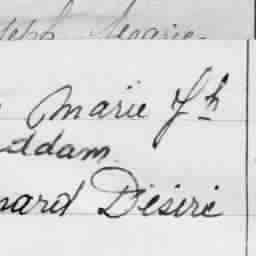 Marie Jh
Addam
nard Désiré